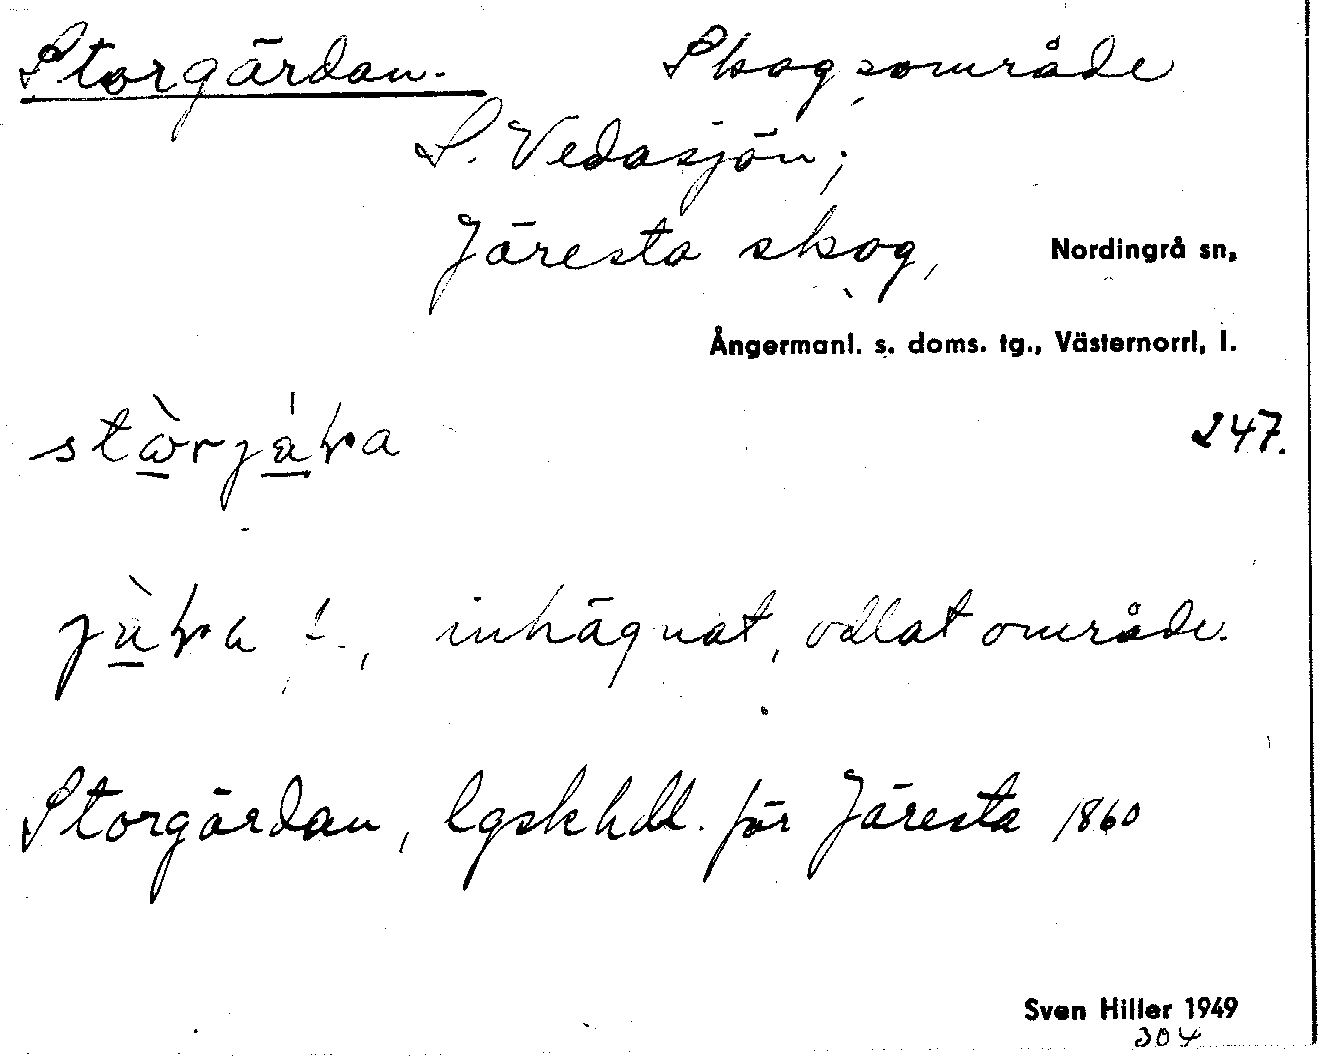 Storgärdan. Skogsområde
S. Vedasjön;
Järesta skog, Nordingrå sn,
Ångermanl. s. doms. tg., Västernorrl, l.
247.
inhägnat, odlat område.
Storgärdan, lgskhdl. för Järesta 1860
Sven Hiller 1949
304